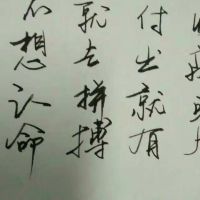 不想认命
就去拼搏
付出就有